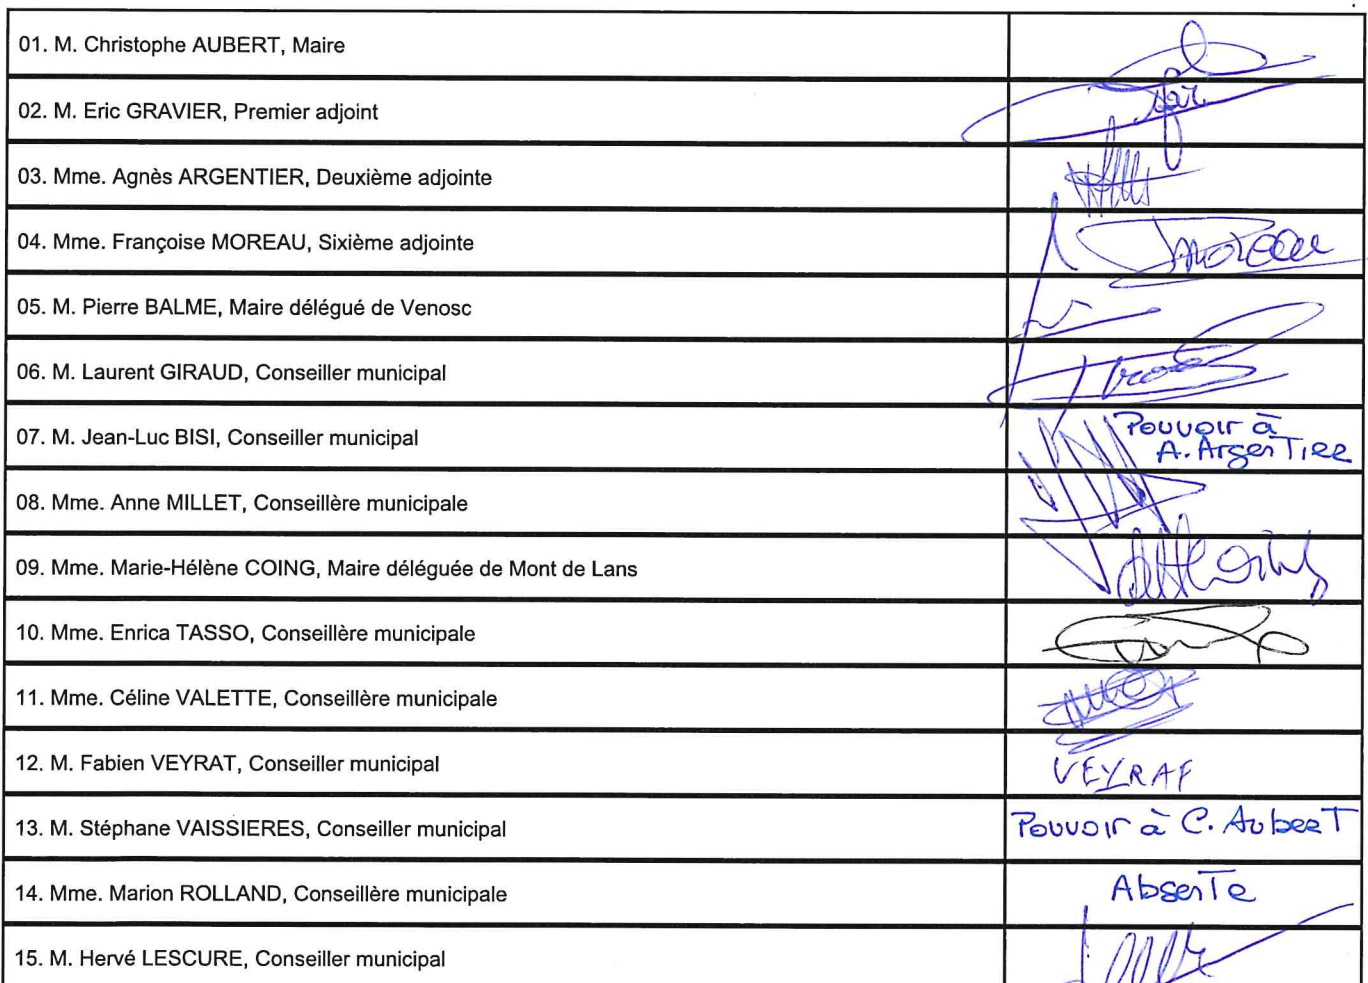 01. M. Christophe AUBERT, Maire
02. M. Eric GRAVIER, Premier adjoint
03. Mme. Agnès ARGENTIER, Deuxième adjointe
04. Mme. Françoise MOREAU, Sixième adjointe
Moreau
05. M. Pierre BALME, Maire délégué de Venosc
06. M. Laurent GIRAUD, Conseiller municipal
07. M. Jean-Luc BISI, Conseiller municipal
Pouvoir à
A. Argentier
08. Mme. Anne MILLET, Conseillère municipale
09. Mme. Marie-Hélène COING, Maire déléguée de Mont de Lans
10. Mme. Enrica TASSO, Conseillère municipale
11. Mme. Céline VALETTE, Conseillère municipale
12. M. Fabien VEYRAT, Conseiller municipal
VEYRAT
13. M. Stéphane VAISSIERES, Conseiller municipal
Pouvoir à C. Aubert
14. Mme. Marion ROLLAND, Conseillère municipale
Absente
15. M. Hervé LESCURE, Conseiller municipal